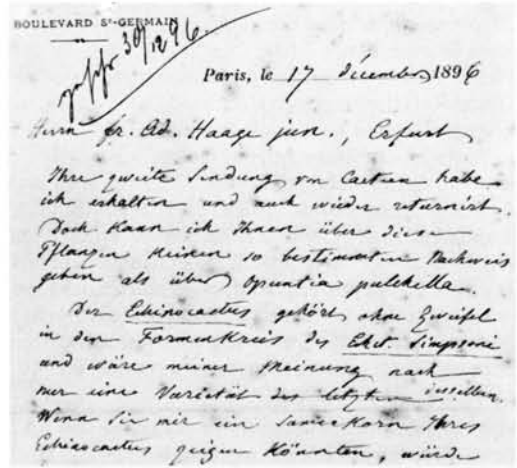 BOULEVARD St-GERMAIN
30/12 96.
Paris, le 17 décembre 1896
Herrn Fr. Ad. Haage jun., Erfurt
Ihre zweite Sendung von Cacteen habe
ich erhalten und auch wieder returnirt.
Doch kann ich Ihnen über diese
Pflanzen keinen so bestimmten Nachweis
geben als über Opuntia pulchella.
Der Echinocactus gehört ohne Zweifel
in den Formenkreis des Echct Simpsoni
und wäre meiner Meinung nach
nur eine Varietät des letzten desselben.
Wenn Sie mir ein Samenkorn Ihres
Echinocactus zeigen könnten, würde